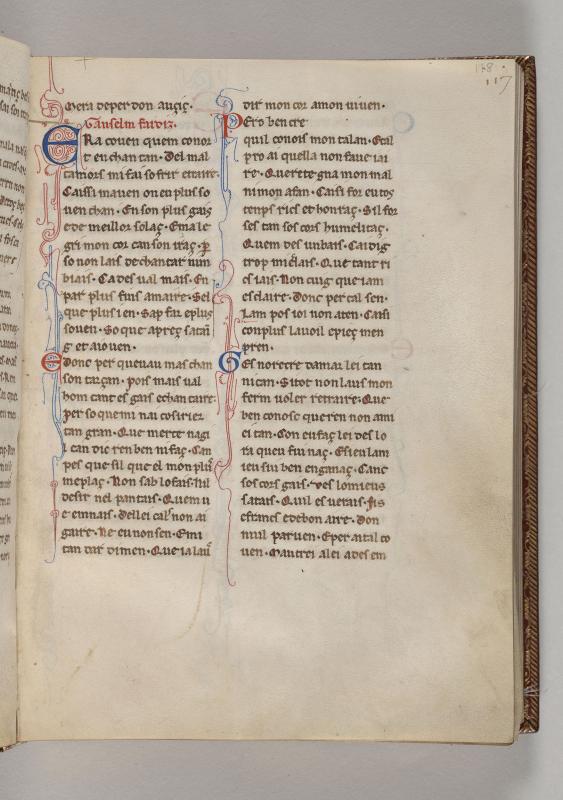 118
117
mera deper don auçiç.
Gauselm faidiz.
ERa couen quem conor
t en chan tan. Del mal
ta mors mi fai sofrir e traire.
Caissi ma uen on en plus so
uen chan. En son plus gais
e de meillor solaç. E male
gri mon cor can son iraç. p
so non lais de chantar nun
biais. Ca des ual mais. En
par plus fins amaire. Sel
que plus i en. Sap far e plus
souen. So que apreç
g et aiouen.
Edonc per que uau mas chan
son tarçan. pois mais ual
hom cant es gais e chan taire.
per so que mi nai cosirier
tan gran. Que merce nagi
i can dic ren ben ni faç. Can
pes que sil que el mon plus
me plaç. Non sab lo fais. Nil
desir nel pantais. Quem u
e em nais. Del lei cal non ai
gaire. Ne eu non sen. E mi
tan dar di men. Que ia lau
dir mon cor amon uiuen.
Pero ben cre
quil conois mon talan. Etal
pro ai quella non faue iai
re. Quer et te gna mon mal
ni mon afan. Caisi for eu toç
temps rics et honraç. Sil for
ses tan sos cors humelitaç.
Quem des un bais. Cai dig
trop Que tant ri
es iais. Non cuig que iam
esclaire. Donc per cal sen.
Lam pos ioi non aten. Caisi
con plus la uoil e pieç men
pren.
Ges no recre damar lei tan
ni can. Si tot non laus mon
ferm uoler retraire. Que
ben conosc que ren non am
ei tan. Con eu faç lei des lo
ra queu fui naç. E si en lam
ieu sui ben enganaç. Canc
sos cors gais. ves lo mieus
satais. Quil es uerais. Fis
e francs e de bon aire. Don
mil par uen. E per ai tal co
uen. Mautrei a lei a des em